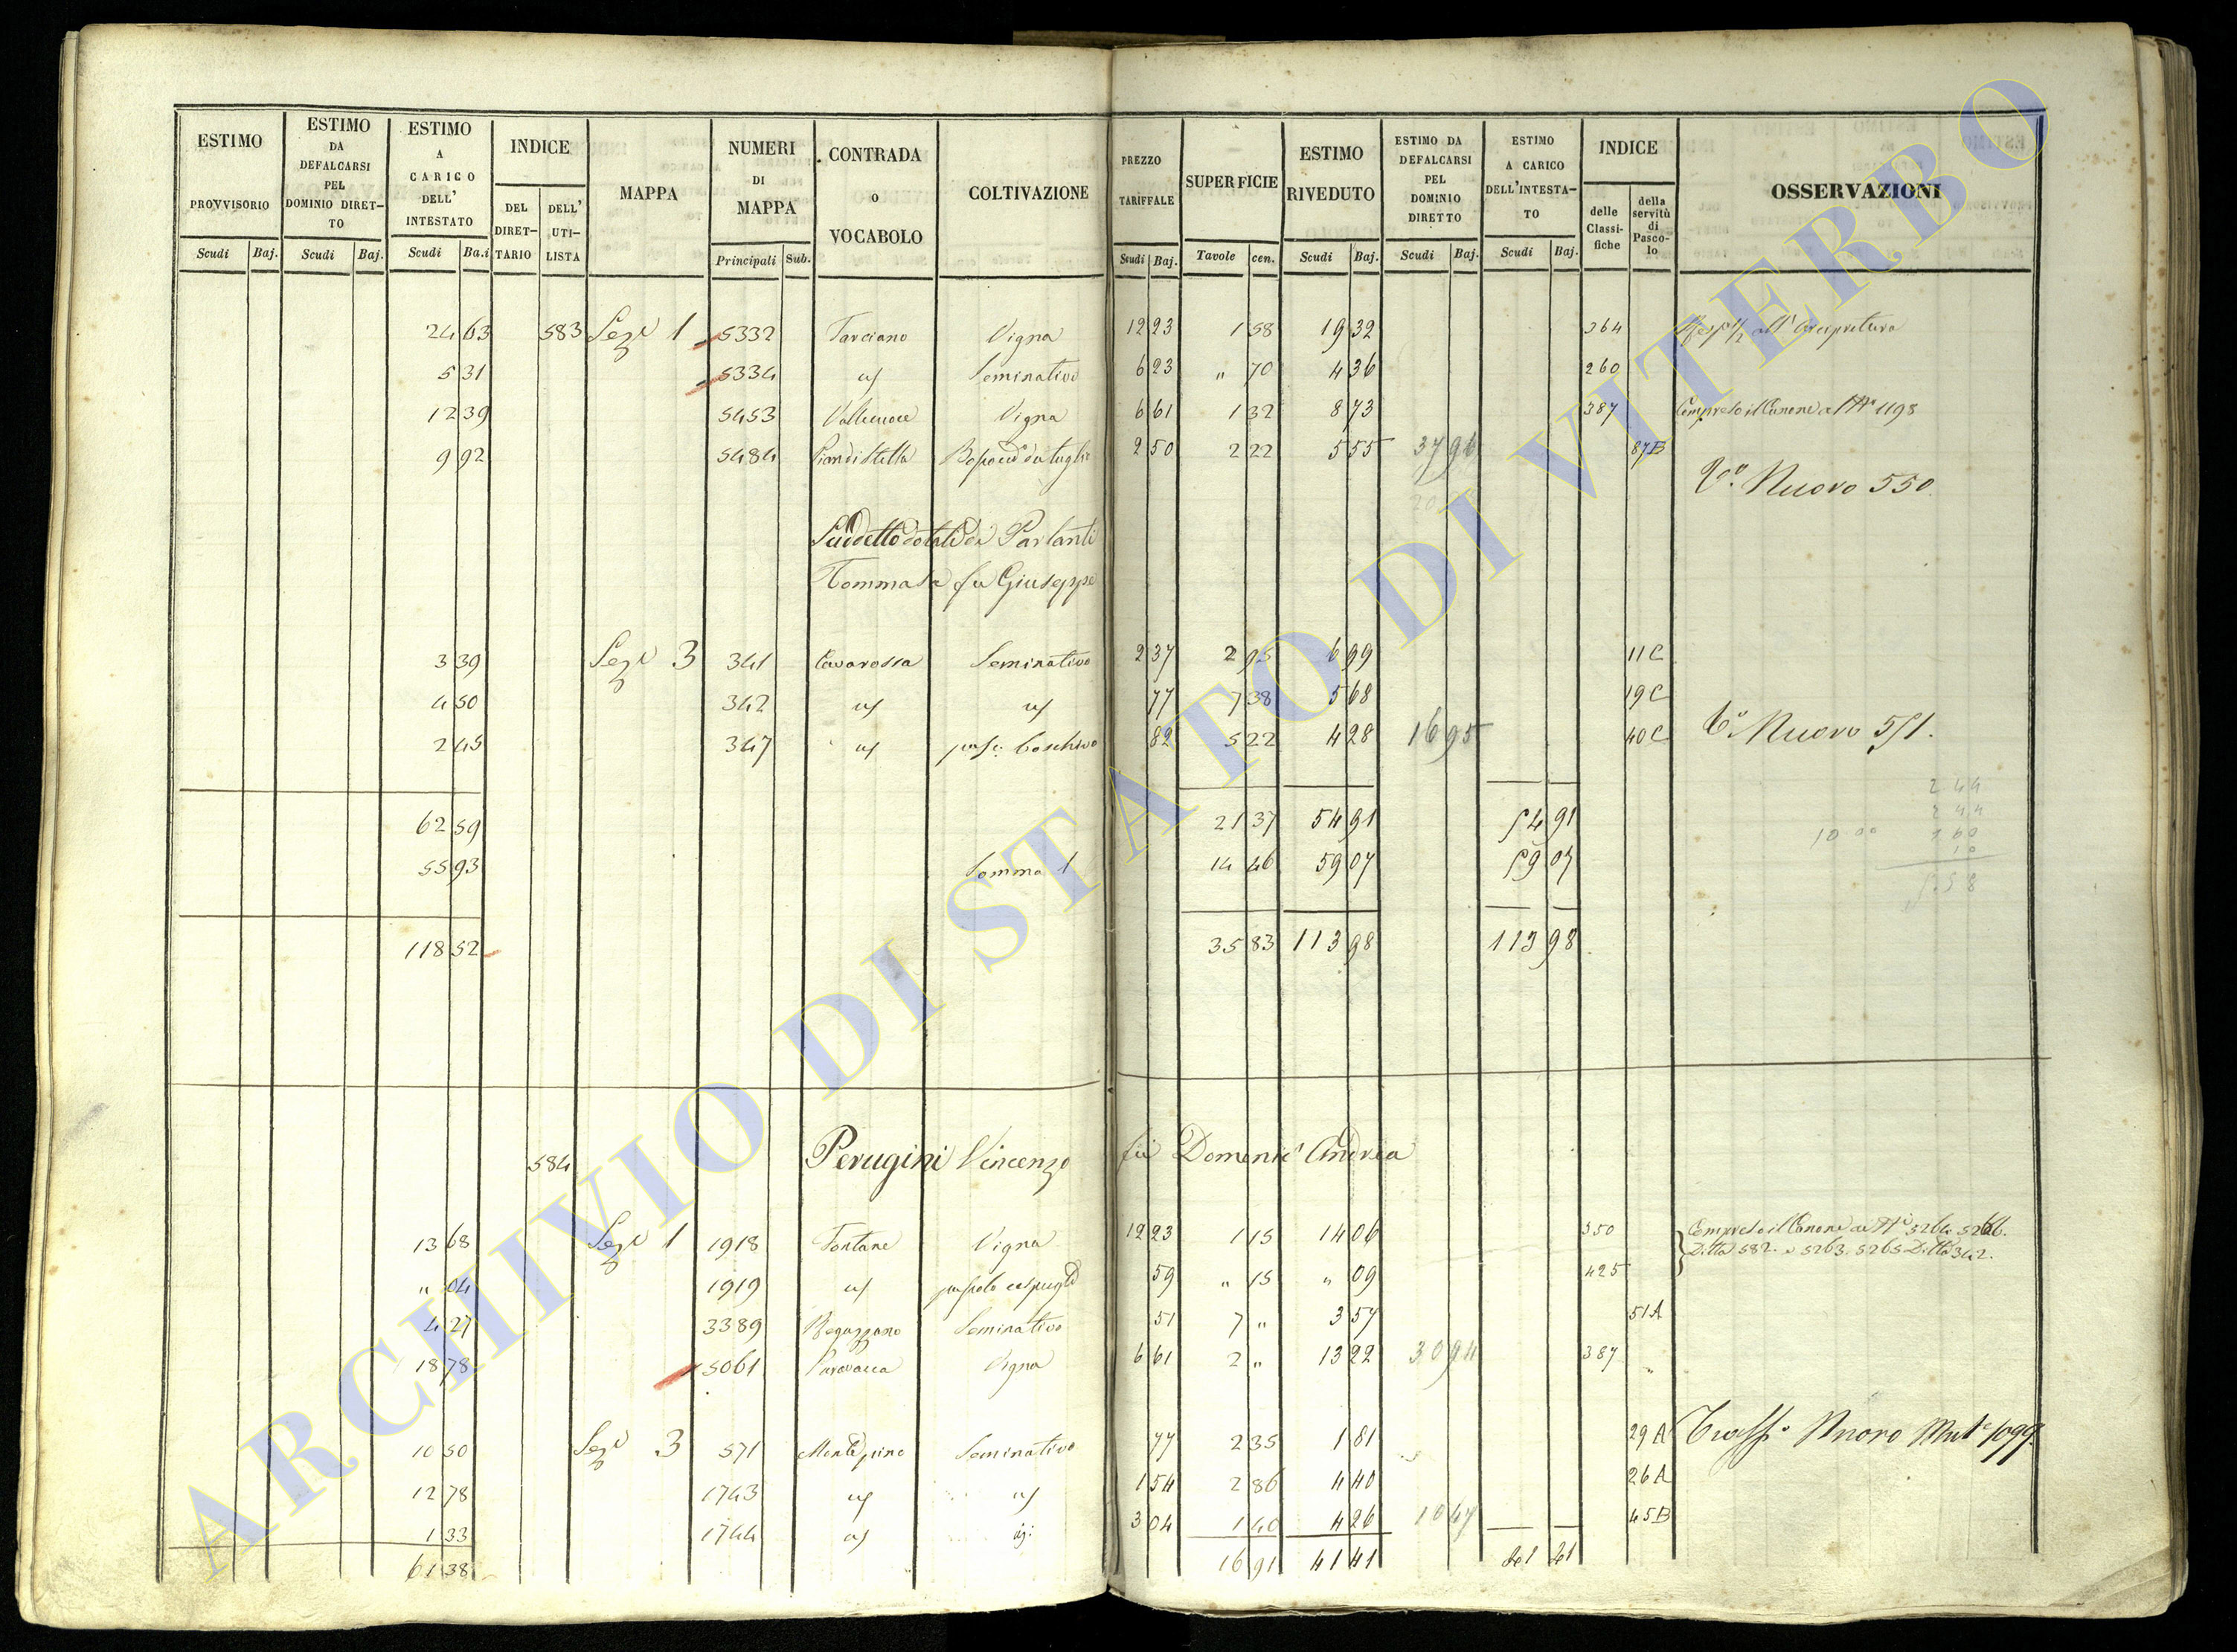 ESTIMO PROVVISORIO
ESTIMO DA DEFALCARSI PEL DOMINIO DIRETTO
ESTIMO A CARICO DELL' INTESTATO
INDICE
DEL DIRETTARIO
DELL' UTILISTA
MAPPA
NUMERI DI MAPPA
CONTRADA o VOCABOLO
COLTIVAZIONE
PREZZO TARIFFALE
SUPERFICIE
ESTIMO RIVEDUTO
ESTIMO DA DEFALCARSI PEL DOMINIO DIRETTO
ESTIMO A CARICO DELL'INTESTATO
INDICE
delle Classifiche
della servitù di Pascolo
OSSERVAZIONI
Scudi Baj. Scudi Baj. Scudi Baj. Principali Sub. Scudi Baj. Tavole cen. Scudi Baj. Scudi Baj. Scudi Baj.
24 63 583 Sez. 1 5332 Tarciano Vigna 12 23 1 58 19 32 364
5 31 5334 Seminativo 6 23 " 70 4 36 260
12 39 5453 Vigna 6 61 1 32 8 73 387 Compreso il Canone al N° 1198
9 92 5484 Piandistella 2 50 2 22 5 55 37 96 87B
Nuovo 550
Suddetto dotali di Parlanti
Tommasa fu Giuseppe
3 39 Sez. 3 341 Cavarossa Seminativo 2 37 2 95 6 99 11C
4 50 342 77 7 38 5 68 19C
2 45 347 pasc. boschivo 82 5 22 4 28 16 95 40C Nuovo 551.
62 59 21 37 54 91 54 91
55 93 Somma 1 14 46 59 07 59 07
118 52 35 83 113 98 113 98
584 Perugini Vincenzo fu Domenic' Andrea
13 68 Sez. 1 1918 Fontane Vigna 12 23 1 15 14 06 350 Compreso il Canone ai N° 5264 5266.
Ditta 582. e 5263. 5265 Ditta 342.
" 04 1919 59 " 15 " 09 425
4 27 3389 Seminativo 51 7 " 3 57 51A
18 78 5061 Vigna 6 61 2 " 13 22 30 94 387 "
10 50 Sez. 3 571 Montepino Seminativo 77 2 35 1 81 29A Nuovo 1099
12 78 1743 1 54 2 86 4 40 26A
1 33 1744 3 04 1 40 4 26 10 47 45B
61 38 16 91 41 41 41 41
ARCHIVIO DI STATO DI VITERBO